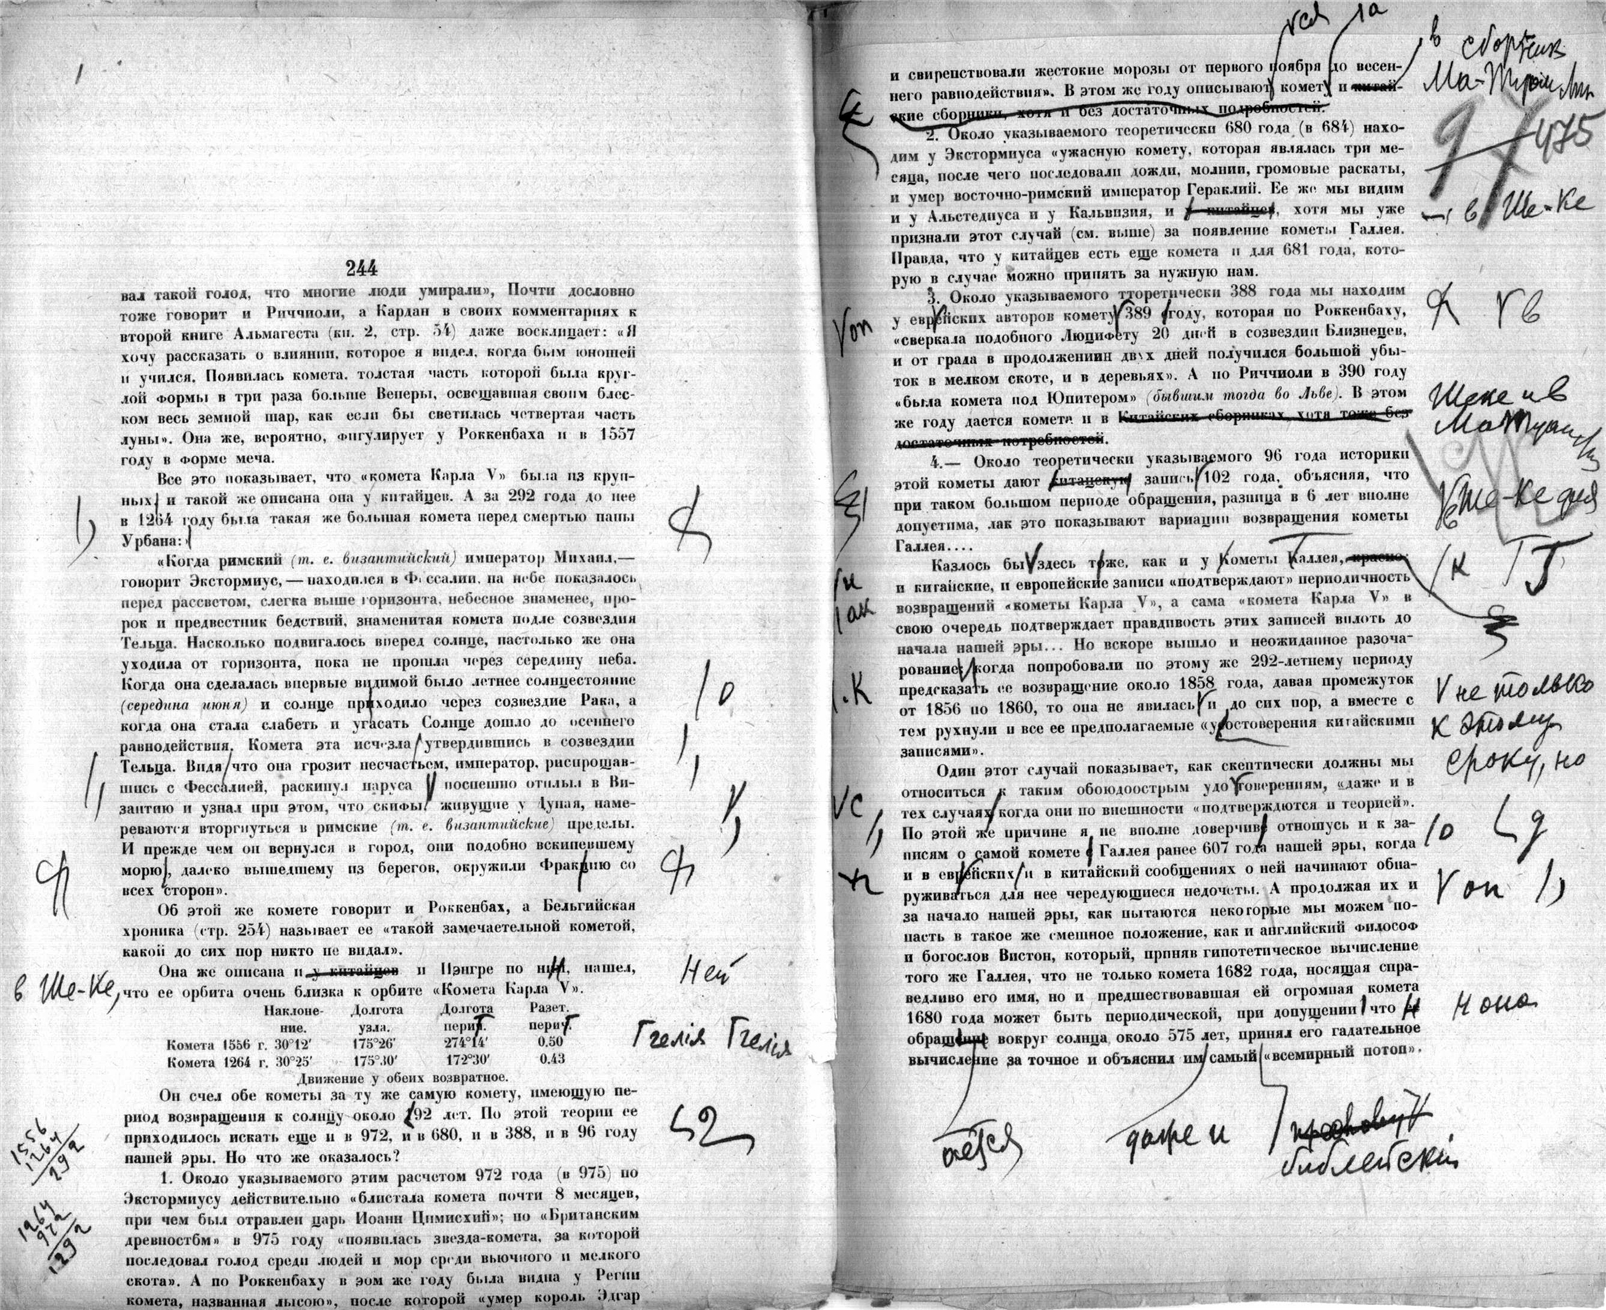 244
вал такой голод, что многие люди умирали», Почти дословно
тоже говорит и Риччиоли, а Кардан в своих комментариях к
второй книге Альмагеста (кн. 2, стр. 54) даже восклицает: «Я
хочу рассказать о влиянии, которое я видел, когда бым юношей
и учился. Появилась комета, толстая часть которой была круг-
лой формы в три раза больше Венеры, освещавшая своим блес-
ком весь земной шар, как если бы светилась четвертая часть
луны». Она же, вероятно, фигулирует у Роккенбаха и в 1557
году в форме меча.
Все это показывает, что «комета Карла V» была из круп-
ных, и такой же описана она у китайцев. А за 292 года до нее
в 1264 году была такая же большая комета перед смертью папы
Урбана:
«Когда римский (т. е. византийский) император Михаил,—
говорит Экстормиус, — находился в Фессалии, на небе показалось
перед рассветом, слегка выше горизонта, небесное знаменее, про-
рок и предвестник бедствий, знаменитая комета подле созвездия
Тельца. Насколько подвигалось вперед солнце, настолько же она
уходила от горизонта, пока не прошла через середину неба.
Когда она сделалась впервые видимой было летнее солнцестояние
(середина июня) и солнце приходило через созвездие Рака, а
когда она стала слабеть и угасать Солнце дошло до осеннего
равнодействия. Комета эта исчезла утвердившись в созвездии
Тельца. Видя что она грозит несчастьем, император, распрощав-
шись с Фессалией, раскинул паруса поспешно отплыл в Ви-
зантию и узнал при этом, что скифы живущие у Дуная, наме-
реваются вторгнуться в римские (т. е. византийские) пределы.
И прежде чем он вернулся в город, они подобно вскипевшему
морю, далеко вышедшему из берегов, окружили Фракцию со
всех сторон».
Об этой же комете говорит и Роккенбах, а Бельгийская
хроника (стр. 254) называет ее «такой замечаетельной кометой,
какой до сих пор никто не видал».
Она же описана и у китайцев и Пэнгре по ним, нашел, ней
в Ше-Ке, что ее орбита очень близка к орбите «Комета Карла V».
Наклоне- Долгота Долгота Разст.
ние. узла. пери. пери.
Комета 1556 г. 30°12' 175°26' 274°14' 0.50 гелія гелія
Комета 1264 г. 30°25' 175°30' 172°30' 0.43
Движение у обеих возвратное.
Он счел обе кометы за ту же самую комету, имеющую пе-
риод возвращения к солнцу около 292 лет. По этой теории ее
приходилось искать еще и в 972, и в 680, и в 388, и в 96 году
нашей эры. Но что же оказалось?
1556
1264
292
1264
972
292
1. Около указываемого этим расчетом 972 года (в 975) по
Экстормиусу действительно «блистала комета почти 8 месяцев,
при чем был отравлен царь Иоанн Цимисхий»; по «Британским
древностбм» в 975 году «появилась звезда-комета, за которой
последовал голод среди людей и мор среди вьючного и мелкого
скота». А по Роккенбаху в эом же году была видна у Регии
комета, названная лысою», после которой «умер король Эдгар
ся ла в сборник
Ма-Туан Лин
и свирепствовали жестокие морозы от первого ноября до весен-
него равнодействия». В этом же году описывают комету и китай-
ские сборники, хотя и без достаточных подробностей.
475
2. Около указываемого теоретически 680 года (в 684) нахо-
дим у Экстормиуса «ужасную комету, которая являлась три ме-
сяца, после чего последовали дожди, молнии, громовые раскаты,
и умер восточно-римский император Гераклий. Ее же мы видим
и у Альстедиуса и у Кальвизия, и китайцев, хотя мы уже в Ше-Ке
признали этот случай (см. выше) за появление кометы Галлея.
Правда, что у китайцев есть еще комета и для 681 года, кото-
рую в случае можно принять за нужную нам.
3. Около указываемого тторетически 388 года мы находим
у еврейских авторов комету 389 году, которая по Роккенбаху, в
«сверкала подобного Люциферу 20 дней в созвездии Близнецев,
и от града в продолжениии двух дней получился большой убы-
ток в мелком скоте, и в деревьях». А по Риччиоли в 390 году
«была комета под Юпитером» (бывшим тогда во Льве). В этом
же году дается комета и в Китайских сборниках, хотя тоже без
достаточных потребностей.
4.— Около теоретически указываемого 96 года историки
этой кометы дают китацскую запись 102 года, объясняя, что
при таком большом периоде обращения, разница в 6 лет вполне
допустима, лак это показывают вариации возвращения кометы
Галлея....
Казлось бы здесь тоже, как и у Кометы Галлея, красно-
и китайские, и европейские записи «подтверждают» периодичность
возвращений «кометы Карла V», а сама «комета Карла V» в
свою очередь подтверждает правдивость этих записей вплоть до
начала нашей эры... Но вскоре вышло и неожиданное разоча-
рование: когда попробовали по этому же 292-летнему периоду
предсказать ее возвращение около 1858 года, давая промежуток
от 1856 по 1860, то она не явилась и до сих пор, а вместе с
тем рухнули и все ее предполагаемые «удостоверения китайскими
записями».
не только
к этому
сроку, но
Один этот случай показывает, как скептически должны мы
относиться к таким обоюдоострым удотоверениям, «даже и в
тех случаях когда они по внешности «подтверждются и теорией».
По этой же причине я не вполне доверчиве отношусь и к за-
писям о самой комете Галлея ранее 607 года нашей эры, когда
и в еврейских и в китайский сообщениях о ней начинают обна-
руживаться для нее чередующиеся недочеты. А продолжая их и
за начало нашей эры, как пытаются некоторые мы можем по-
пасть в такое же смешное положение, как и английский философ
и богослов Вистон, который, приняв гипотетическое вычисление
того же Галлея, что не только комета 1682 года, носящая спра-
ведливо его имя, но и предшествовавшая ей огромная комета
1680 года может быть периодической, при допущении что и она
обращение вокруг солнца около 575 лет, принял его гадательное
вычисление за точное и объяснил им самый «всемирный потоп».
ается даже и
библейскій